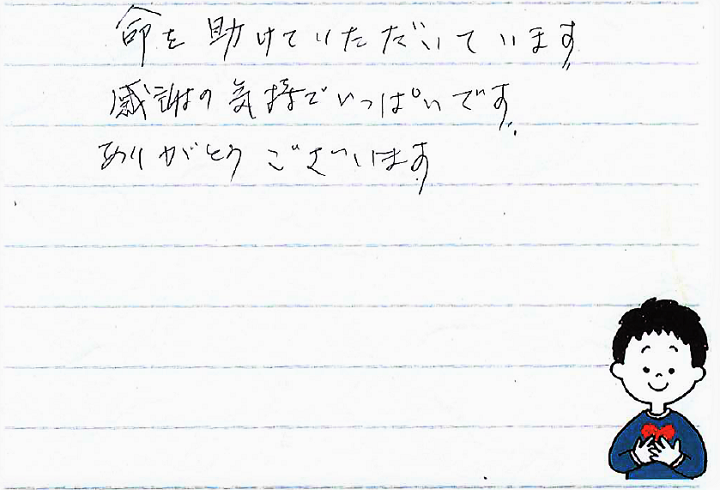 命を助けていただいています
感謝の気持でいっぱいです
ありがとうございます